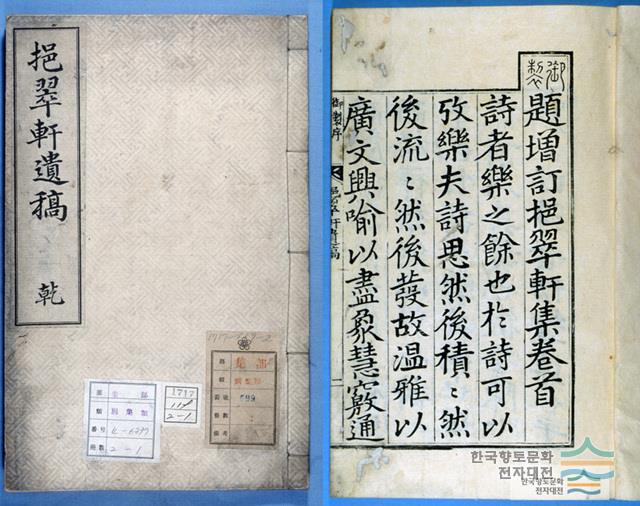 挹翠軒遺稿 乾
部 集部
類 別集類
冊數 2-1
1717
2-1
集部
御製
題增訂挹翠軒集卷首
詩者樂之餘也於詩可以
攷樂夫詩思然後積〻然
後流〻然後發故温雅以
廣文興喻以盡象慧竅敷通
御製序
한국향토문화
전자대전
한국향토문화
전자대전